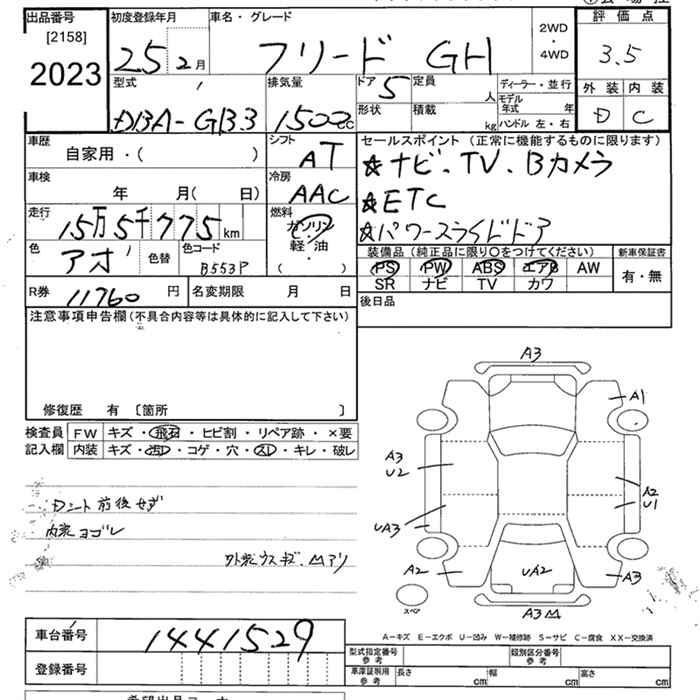 出品番号
[2158]
2023
初度登録年月
25 2月
車名・グレード
フリード GH
2WD
・
4WD
評価点
3.5
外装 内装
D C
型式
DBA-GB3
排気量
1500cc
ドア 5
定員 人
形状
積載 kg
ディーラー・並行
モデル年式 年
ハンドル 左・右
車歴
自家用・( )
シフト
AT
車検
年 月( 日)
冷房
AAC
走行
15万5千775km
燃料
ガソリン
軽・油
( )
色
アオ
色替
色コード
B553P
R券 11760円
名変期限 月 日
セールスポイント (正常に機能するものに限ります)
☆ナビ、TV、Bカメラ
☆ETC
☆パワースライドドア
装備品(純正品に限り○をつけてください)
新車保証書
PS PW ABS エアB AW
SR ナビ TV カワ
有・無
後日品
注意事項申告欄(不具合内容等は具体的に記入して下さい)
修復歴 有 〔箇所 〕
検査員
記入欄
FW キズ・飛石・ヒビ割・リペア跡・×要
内装 キズ・汚レ・コゲ・穴・スレ・キレ・破レ
Dニット前後せず
内装ヨゴレ
外装ウスキズ.凹アリ
A3
A1
A3
U2
A2
U1
UA3
A2
UA2
A3
スペア
A3凹
A−キズ E−エクボ U−凹み W−補修跡 S−サビ C−腐食 XX−交換済
車台番号
1441529
登録番号
型式指定番号
参考
類別区分番号
参考
車庫証明用
参考
長さ cm
幅 cm
高さ cm